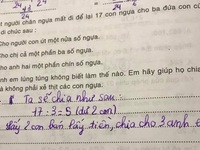 t người chăn ngựa mất đi để lại 17 con ngựa cho ba đứa con củ
di chúc sau :
Cho người con út một nửa số ngựa.
cho chị cả một phần ba số ngựa.
cho anh hai một phần chín số ngựa.
anh em lúng túng không biết làm thế nào. Em hãy giúp họ chia
à không phải xẻ thịt các con ngựa.
Ta sẽ chia như sau :
17 : 3 = 5 (dư 2 con)
lấy 2 con bán lấy tiền, chia cho 3 anh